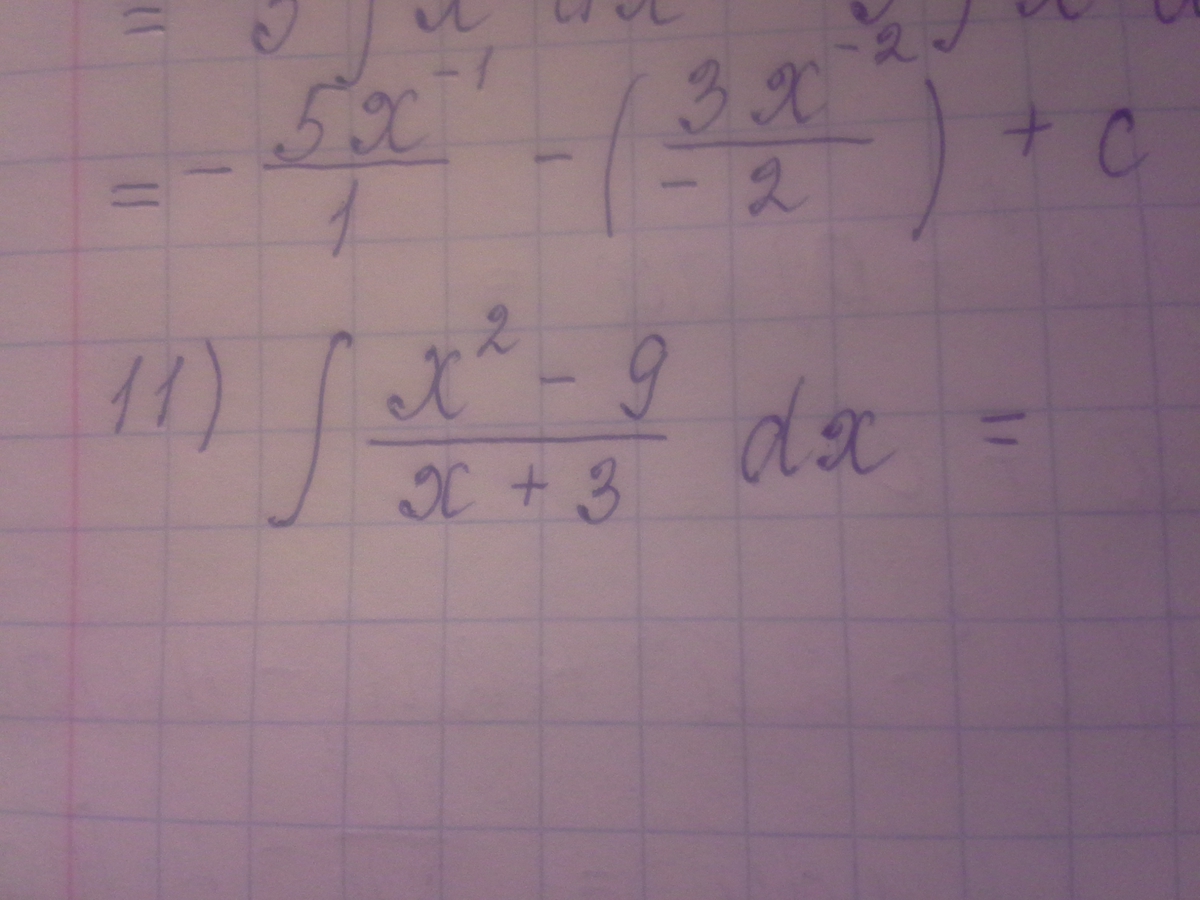 = - 5x⁻¹/1 - (3x⁻²/-2) + c
11) ∫ x² - 9 / x + 3 dx =